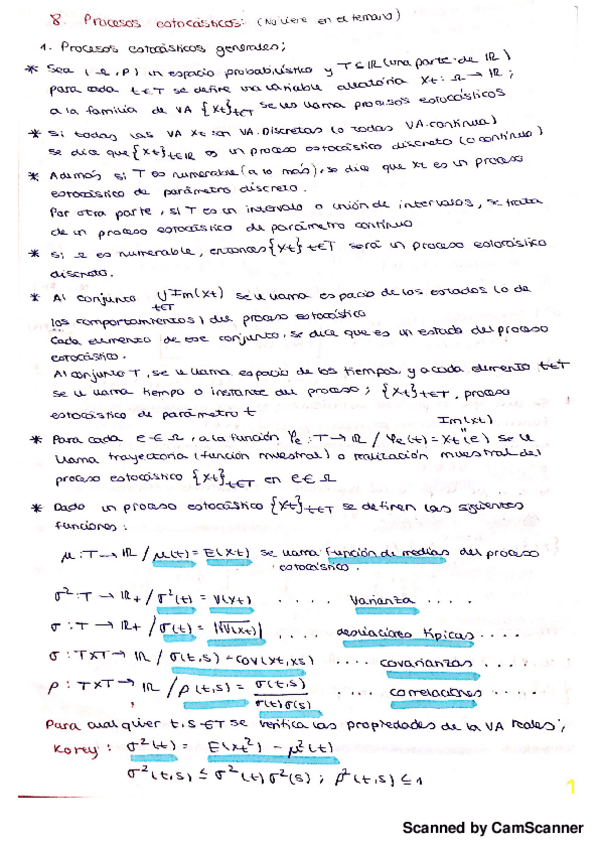 8. Procesos estocásticos: (No viene en el temario)
1. Procesos estocásticos generales;
* Sea (Ω, P) un espacio probabilístico y T ⊆ IR (una parte de IR)
para cada t∈T se define una variable aleatoria Xt: Ω → IR;
a la familia de VA {Xt}t∈T se le llama procesos estocásticos
* Si todas las VA Xt son VA.Discretas (o todas VA.continua)
se dice que {Xt}t∈IR es un proceso estocástico discreto (o continuo)
* Además si T es numerable (a lo más), se dice que Xt es un proceso
estocástico de parámetro discreto.
Por otra parte, si T es un intervalo o unión de intervalos, se trata
de un proceso estocástico de parámetro continuo
* Si Ω es numerable, entonces {Xt} t∈T será un proceso estocástico
discreto.
* Al conjunto ∪ Im(Xt) se le llama espacio de los estados (o de
t∈T
los comportamientos) del proceso estocástico
Cada elemento de ese conjunto, se dice que es un estado del proceso
estocástico.
Al conjunto T, se le llama espacio de los tiempos, y a cada elemento t∈T
se le llama tiempo o instante del proceso; {Xt}t∈T, proceso
estocástico de parámetro t
Im(xt)
* Para cada e ∈ Ω, a la función φe: T → IR / φe(t) = Xt(e) se le
llama trayectoria (función muestral) o realización muestral del
proceso estocástico {Xt}t∈T en e∈Ω
* Dado un proceso estocástico {Xt}t∈T se definen las siguientes
funciones:
μ: T → IR / μ(t) = E(Xt) se llama función de medias del proceso
estocástico.
σ²: T → IR+ / σ²(t) = V(Xt) .... varianza ....
σ: T → IR+ / σ(t) = |√V(Xt)| .... desviaciones típicas ....
σ: TxT → IR / σ(t,s) = COV(Xt,Xs) .... covarianzas ....
ρ: TxT → IR / ρ(t,s) = σ(t,s) / σ(t)σ(s) .... correlaciones ....
Para cualquier t,s ∈T se verifica las propiedades de la VA reales;
σ²(t) = E(Xt²) - μ²(t)
σ²(t,s) ≤ σ²(t)σ²(s) ; ρ²(t,s) ≤ 1
1
Scanned by CamScanner